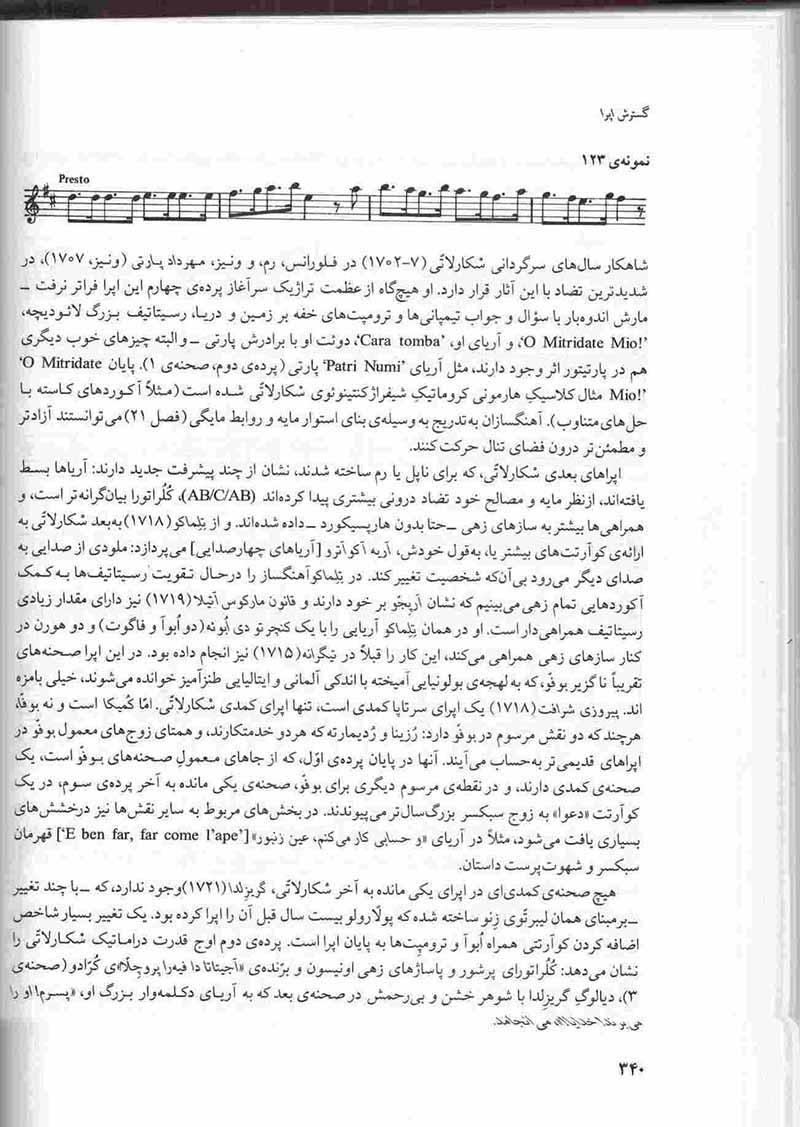 گسترش اپرا
نمونه‌ی ۱۲۳
Presto
شاهکار سال‌های سرگردانی سْکارلاتّی (۷-۱۷۰۲) در فلورانس، رم، و ونیز، مهرداد پارتی (ونیز، ۱۷۰۷)، در
شدیدترین تضاد با این آثار قرار دارد. او هیچ‌گاه از عظمت تراژیک سرآغاز پرده‌ی چهارم این اپرا فراتر نرفت –
مارش اندوه‌بار با سؤال و جواب تیمپانی‌ها و ترومپت‌های خفه بر زمین و دریا، رسیتاتیف بزرگ لائودیچه،
'O Mitridate Mio!'، و آریای او، 'Cara tomba'، دوئت او با برادرش پارتی – و البته چیزهای خوب دیگری
هم در پارتیتور اثر وجود دارند، مثل آریای 'Patri Numi' پارتی (پرده‌ی دوم، صحنه‌ی ۱). پایان 'O Mitridate
Mio!' مثال کلاسیکِ هارمونی کروماتیک شیفراژ کنتینوئوی سْکارلاتّی شده است (مثلاً آکوردهای کاسته با
حل‌های متناوب). آهنگسازان به‌تدریج به وسیله‌ی بنای استوار مایه و روابط مایگی (فصل ۲۱) می‌توانستند آزادتر
و مطمئن‌تر درون فضای تنال حرکت کنند.
اپراهای بعدی سْکارلاتّی، که برای ناپل یا رم ساخته شدند، نشان از چند پیشرفت جدید دارند: آریاها بسط
یافته‌اند، ازنظر مایه و مصالح خود تضاد درونی بیشتری پیدا کرده‌اند (AB/C/AB)، کُلُراتورا بیان‌گرانه‌تر است، و
همراهی‌ها بیشتر به سازهای زهی –حتا بدون هارپسیکورد –داده شده‌اند. و از تِلِماکو (۱۷۱۸) به‌بعد سْکارلاتّی به
ارائه‌ی کوآرتت‌های بیشتر یا، به‌قول خودش، آریه آکوآترو [آریاهای چهارصدایی] می‌پردازد: ملودی از صدایی به
صدای دیگر می‌رود بی‌آن‌که شخصیت تغییر کند. در تِلِماکو آهنگساز را درحال تقویت رسیتاتیف‌ها به کمک
آکوردهایی تمام زهی می‌بینیم که نشان آرپِجّو بر خود دارند و قانون مارکوس آتیلا (۱۷۱۹) نیز دارای مقدار زیادی
رسیتاتیف همراهی‌دار است. او در همان تِلِماکو آریایی را با یک کنچرتو دی اُبوئه (دو اُبوآ و فاگوت) و دو هورن در
کنار سازهای زهی همراهی می‌کند، این کار را قبلاً در تیگرانه (۱۷۱۵) نیز انجام داده بود. در این اپرا صحنه‌های
تقریباً ناگزیر بوفّو، که به لهجه‌ی بولونیایی آمیخته با اندکی آلمانی و ایتالیایی طنزآمیز خوانده می‌شوند، خیلی بامزه
اند. پیروزی شرافت (۱۷۱۸) یک اپرای سرتاپا کمدی است، تنها اپرای کمدی سْکارلاتّی. امّا کُمیکا است و نه بوفّا،
هرچند که دو نقش مرسوم در بوفّو دارد: رُزینا و رُدیمارته که هر دو خدمتکارند، و همتای زوج‌های معمول بوفّو در
اپراهای قدیمی‌تر به‌حساب می‌آیند. آنها در پایان پرده‌ی اوّل، که از جاهای معمولِ صحنه‌های بوفّو است، یک
صحنه‌ی کمدی دارند، و در نقطه‌ی مرسوم دیگری برای بوفّو، صحنه‌ی یکی مانده به آخر پرده‌ی سوم، در یک
کوآرتت «دعوا» به زوج سبکسر بزرگ‌سال‌تر می‌پیوندند. در بخش‌های مربوط به سایر نقش‌ها نیز درخشش‌های
بسیاری یافت می‌شود، مثلاً در آریای «و حسابی کار می‌کنم، عین زنبور» ['E ben far, far come l'ape'] قهرمان
سبکسر و شهوت‌پرست داستان.
هیچ صحنه‌ی کمدی‌ای در اپرای یکی مانده به آخر سْکارلاتّی، گریزلدا (۱۷۲۱) وجود ندارد، که –با چند تغییر
–برمبنای همان لیبرتّوی زِنو ساخته شده که پولارولو بیست سال قبل آن را اپرا کرده بود. یک تغییر بسیار شاخص
اضافه کردن کوآرتتی همراه اُبوآ و ترومپت‌ها به پایان اپرا است. پرده‌ی دوم اوج قدرت دراماتیک سْکارلاتّی را
نشان می‌دهد: کُلُراتورای پرشور و پاساژهای زهی اونیسون و برّنده‌ی «آجیتاتا دا فیه‌را پروچلاّ»ی کُرّادو (صحنه‌ی
۳)، دیالوگ گریزلدا با شوهر خشن و بی‌رحمش در صحنه‌ی بعد که به آریای دکلمه‌وار بزرگ او، «پسرم! او را
۳۴۰